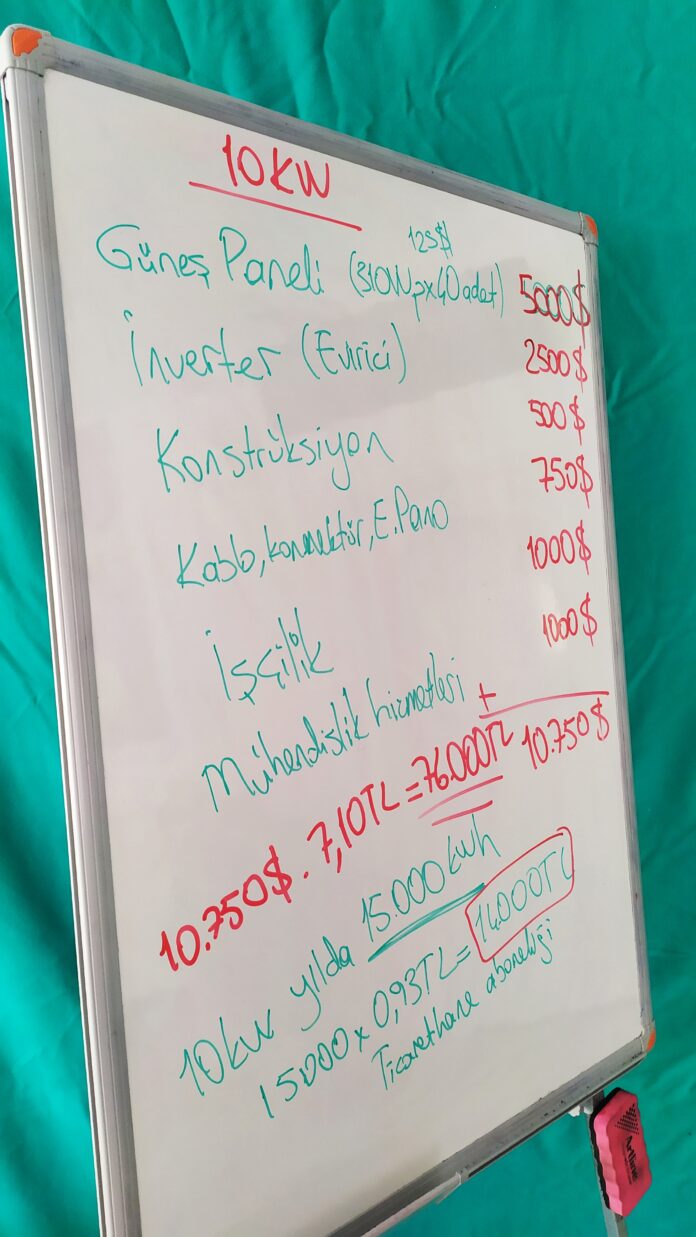 10KW
125$
Güneş Paneli (310Wpx40adet) 5000$
İnverter (Evirici) 2500$
Konstrüksiyon 500$
Kablo, konnektör, E.Pano 750$
İşçilik 1000$
Mühendislik hizmetleri 1000$
+
10.750$
10.750$ . 7,10TL = 76.000TL
10kw yılda 15.000 kwh
15000 x 0,93TL = 14000TL
Ticarethane aboneliği
Artline